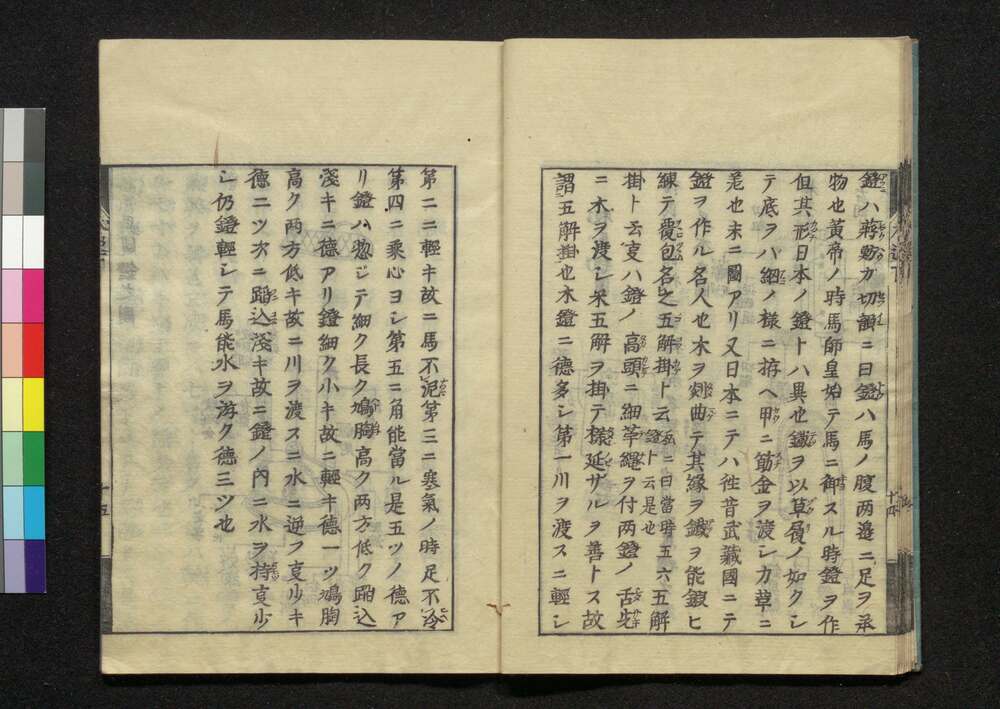 鐙ハ蔣魴カ切韻ニ曰鐙ハ馬ノ腹両邉ニ足ヲ承
物也黄帝ノ時馬師皇始テ馬ニ御スル時鐙ヲ作
但其形日本ノ鐙トハ異也鐵ヲ以草履ノ如クシ
テ底ヲハ網ノ様ニ拵ヘ甲ニ筋金ヲ渡シ力革ニ
也末ニ圖アリ又日本ニテハ往昔武藏國ニテ
鐙ヲ作ル名人也木ヲ剜曲テ其縁ヲ鐵ヲ能鍛ヒ
練テ覆包名之五解掛ト云
掛ト云支ハ鐙ノ高頭ニ細革縄ヲ付両鐙ノ舌
ニ木ヲ渡シ五解ヲ掛テ様延サルヲ善トス故
謂五解掛也木鐙ニ德多シ第一川ヲ渡スニ輕シ
第二ニ輕キ故ニ馬不泥第三ニ寒氣ノ時足不冷
第四ニ乗心ヨシ第五ニ角能當ル是五ツノ德ア
リ鐙ハ惣シテ細ク長ク鳩胸高ク两方低ク踏込
淺キニ德アリ鐙細ク小キ故ニ輕キ德一ツ鳩胸
高ク两方低キ故ニ川ヲ渡スニ水ニ逆フ支少キ
德二ツ次ニ踏込淺キ故ニ鐙ノ内ニ水ヲ持支少
シ仍鐙輕シテ馬能水ヲ游ク德三ツ也
十五